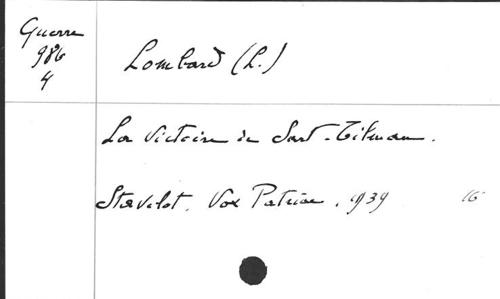 Guerre
986
4
Lombard (L.)
La Victoire de Sart-Tilman.
Stavelot, Vox Patriae, 1939 16